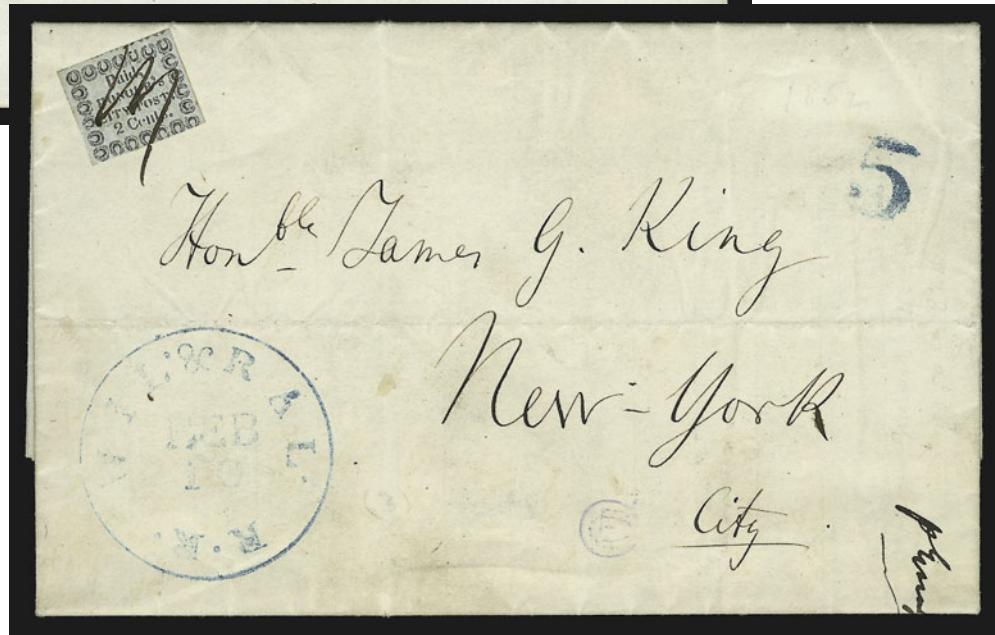 Paid
CITY POST.
2 Cents.
5
Honble James G. King
New-York
City
WEL. & RAL.
FEB
19
R. R.